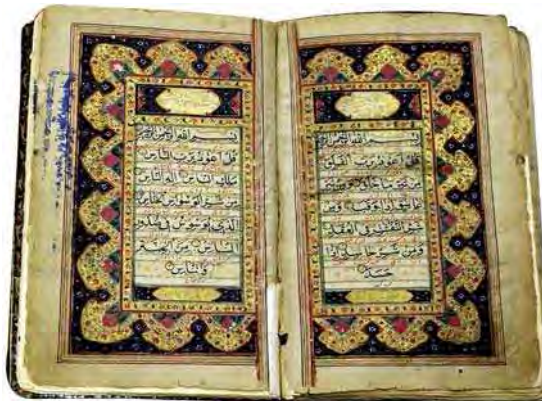 بسم الله الرحمن الرحيم
قل اعوذ برب الفلق
من شر ما خلق ومن شر
غاسق اذا وقب ومن
شر النفاثات في العقد
ومن شر حاسد اذا
حسد
بسم الله الرحمن الرحيم
قل اعوذ برب الناس
ملك الناس اله الناس
من شر الوسواس الخناس
الذي يوسوس في صدور
الناس من الجنة
والناس